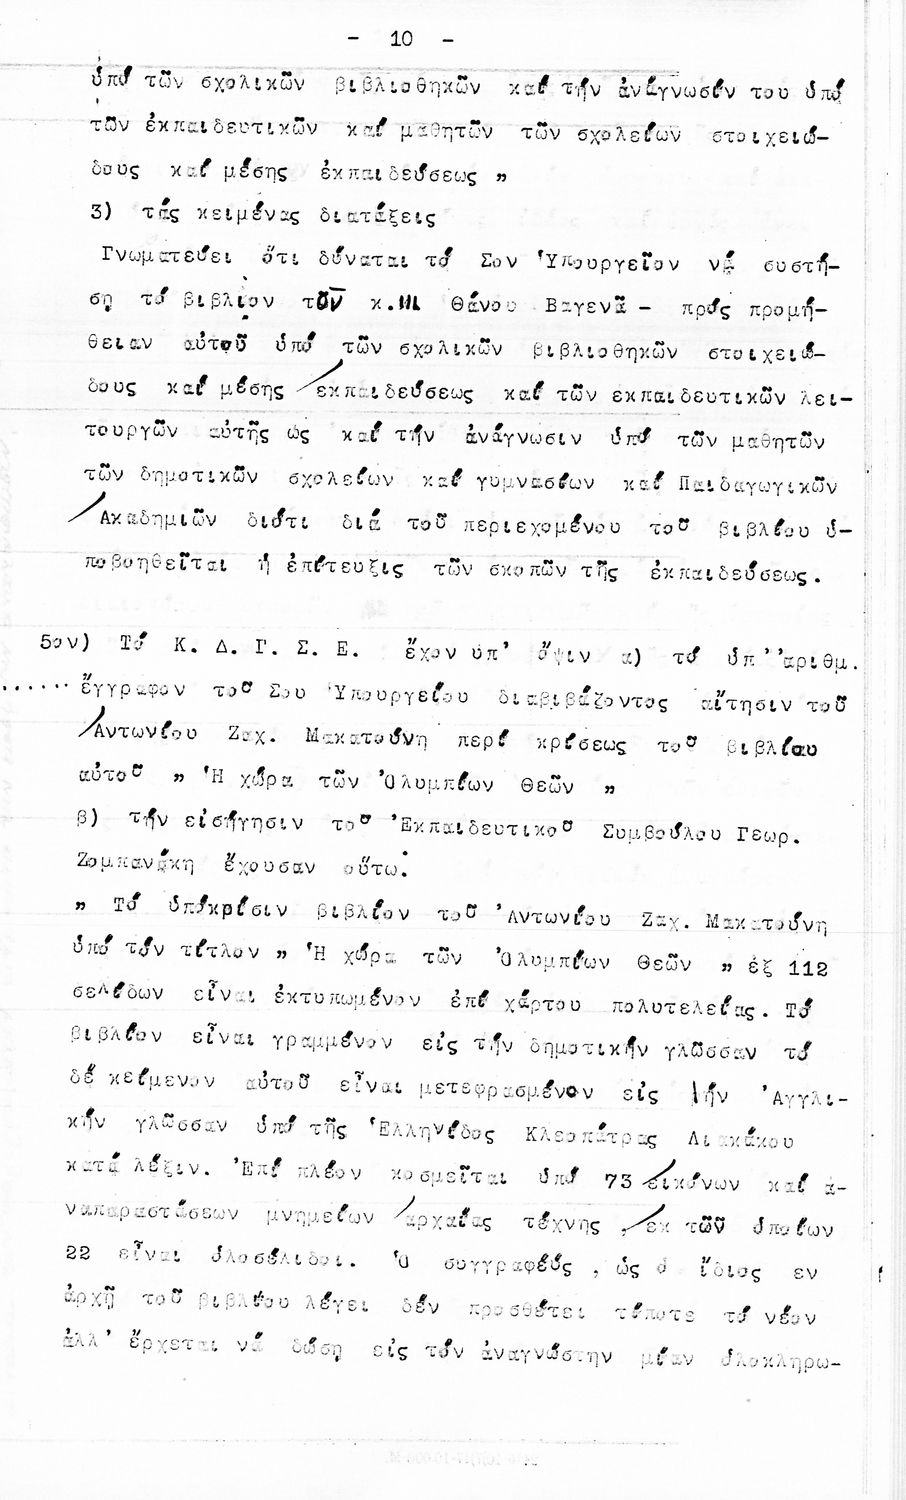 - 10 -
ὑπό τῶν σχολικῶν βιβλιοθηκῶν καί τήν ἀνάγνωσίν του ὑπό
τῶν ἐκπαιδευτικῶν καί μαθητῶν τῶν σχολείων στοιχειώ-
δους καί μέσης ἐκπαιδεύσεως "
3) τάς κειμένας διατάξεις
Γνωματεύει ὅτι δύναται τό Σον Ὑπουργεῖον νά συστή-
σῃ τό βιβλίον τοῦ κ. Θάνου Βαγενᾶ - πρός προμή-
θειαν αὐτοῦ ὑπό τῶν σχολικῶν βιβλιοθηκῶν στοιχειώ-
δους καί μέσης ἐκπαιδεύσεως καί τῶν ἐκπαιδευτικῶν λει-
τουργῶν αὐτῆς ὡς καί τήν ἀνάγνωσιν ὑπό τῶν μαθητῶν
τῶν δημοτικῶν σχολείων καί γυμνασίων καί Παιδαγωγικῶν
Ἀκαδημιῶν διότι διά τοῦ περιεχομένου τοῦ βιβλίου ὑ-
ποβοηθεῖται ἡ ἐπίτευξις τῶν σκοπῶν τῆς ἐκπαιδεύσεως.
5ον) Τό Κ. Δ. Γ. Σ. Ε. ἔχον ὑπ' ὄψιν α) τό ὑπ''αριθμ.
...... ἔγγραφον τοῦ Σου Ὑπουργείου διαβιβάζοντος αἴτησιν τοῦ
Ἀντωνίου Ζαχ. Μακατούνη περί κρίσεως τοῦ βιβλίου
αὐτοῦ " Ἡ χώρα τῶν Ὀλυμπίων Θεῶν "
β) τήν εἰσήγησιν τοῦ Ἐκπαιδευτικοῦ Συμβούλου Γεωρ.
Ζομπανάκη ἔχουσαν οὕτω:
" Τό ὑπόκρίσιν βιβλίον τοῦ Ἀντωνίου Ζαχ. Μακατούνη
ὑπό τόν τίτλον " Ἡ χώρα τῶν Ὀλυμπίων Θεῶν " ἐξ 112
σελίδων εἶναι ἐκτυπωμένον ἐπί χάρτου πολυτελείας. Τό
βιβλίον εἶναι γραμμένον εἰς τήν δημοτικήν γλῶσσαν τό
δέ κείμενον αὐτοῦ εἶναι μετεφρασμένον εἰς τήν Ἀγγλι-
κήν γλῶσσαν ὑπό τῆς Ἑλληνίδος Κλεοπάτρας Λιακάκου
κατά λέξιν. Ἐπί πλέον κοσμεῖται ὑπό 73 εἰκόνων καί ἀ-
ναπαραστάσεων μνημείων ἀρχαίας τέχνης , ἐκ τῶν ὁποίων
22 εἶναι ὁλοσέλιδοι. Ὁ συγγραφεύς , ὡς ὁ ἴδιος εν
ἀρχῇ τοῦ βιβλίου λέγει δέν προσθέτει τίποτε τό νέον
ἀλλ' ἔρχεται νά δώσῃ εἰς τόν ἀναγνώστην μίαν ὁλοκληρω-